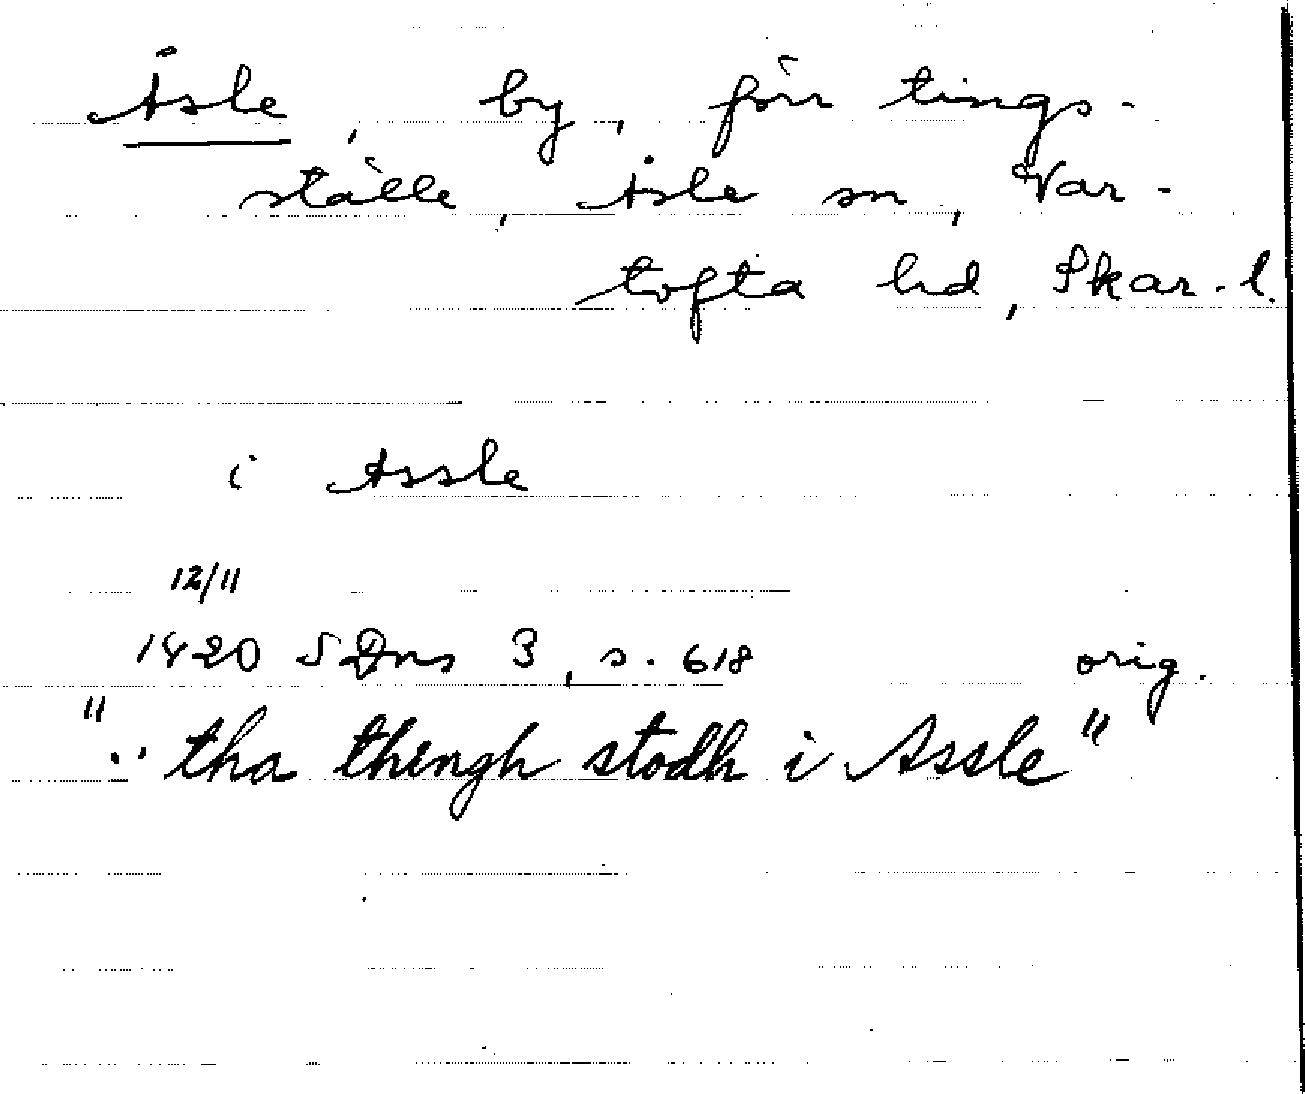 Åsle, by, förr tings-
ställe, Åsle sn, Var-
tofta hd, Skar. l.
i Assle
12/11
1420 SDns 3, s. 618 orig.
".. tha thingh stodh i Assle"